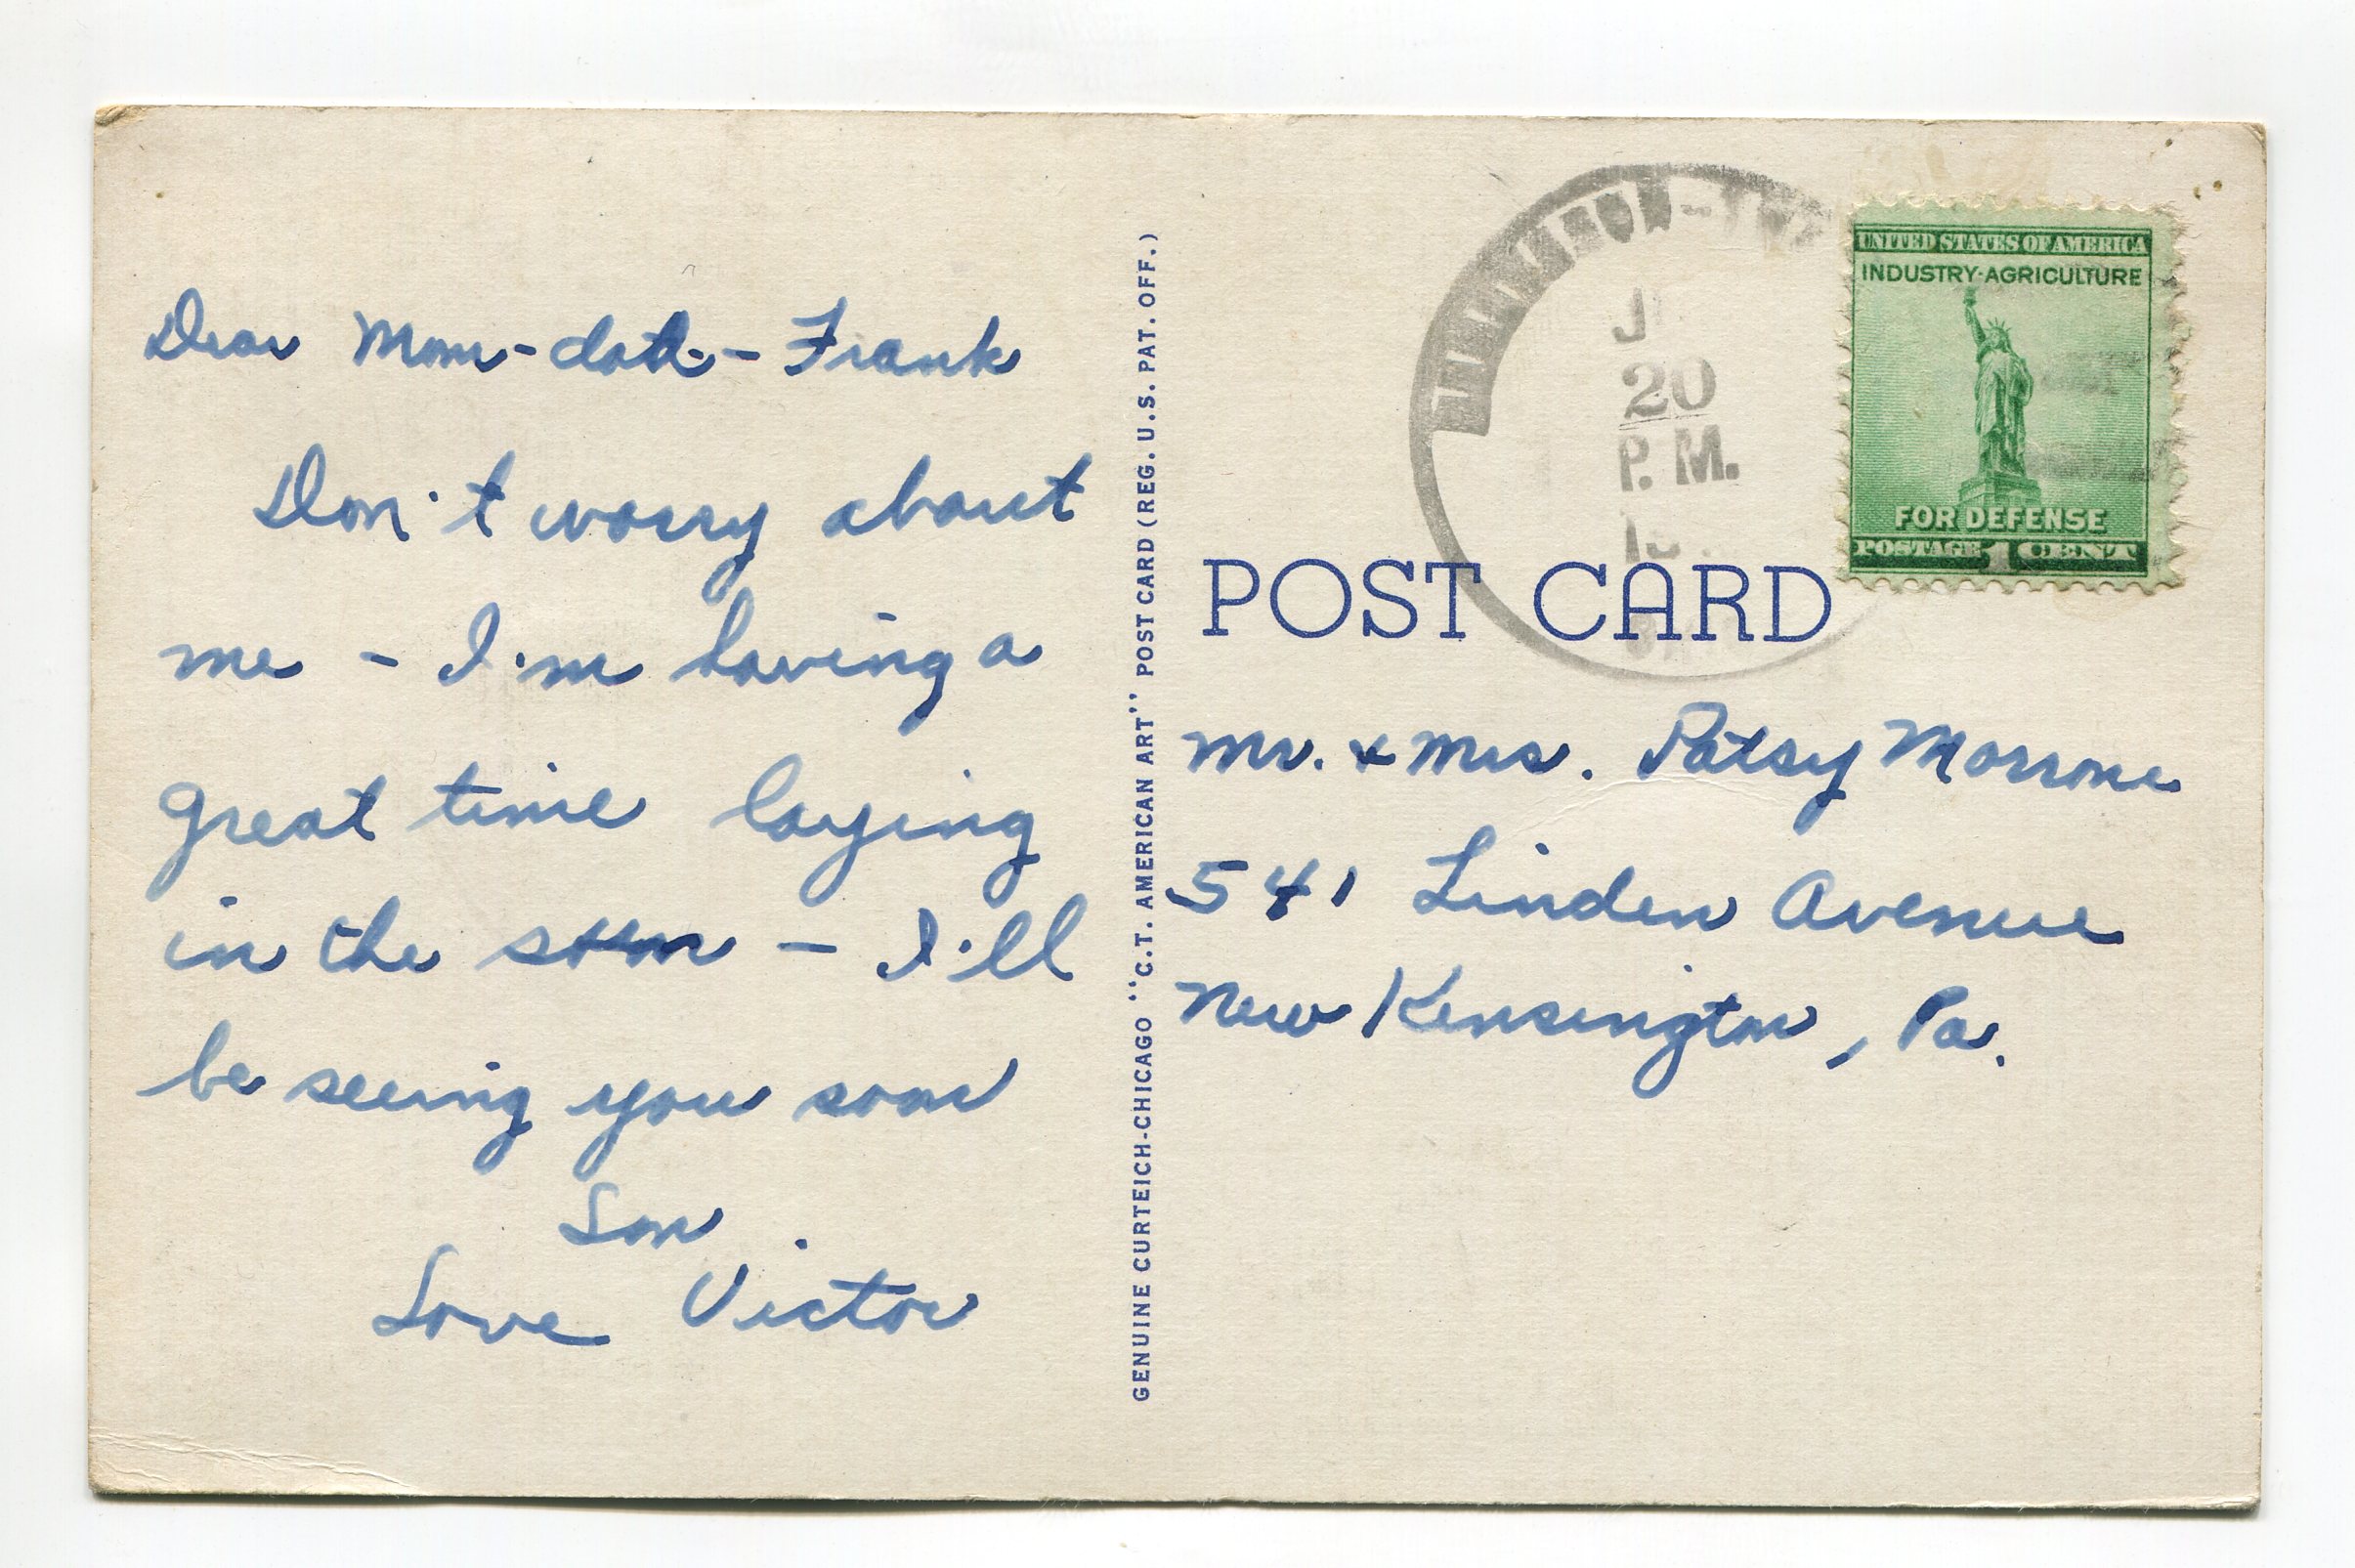 Dear Mom-dad-Frank
Don't worry about
me - I'm having a
great time laying
in the sun - I'll
be seeing you soon
Son
Love Victor
GENUINE CURTEICH-CHICAGO "C.T. AMERICAN ART" POST CARD (REG. U.S. PAT. OFF.)
J
20
P. M.
UNITED STATES OF AMERICA
INDUSTRY·AGRICULTURE
FOR DEFENSE
POSTAGE 1 CENT
POST CARD
Mr. & Mrs. Patsy Morrone
541 Linden Avenue
New Kensington, Pa.